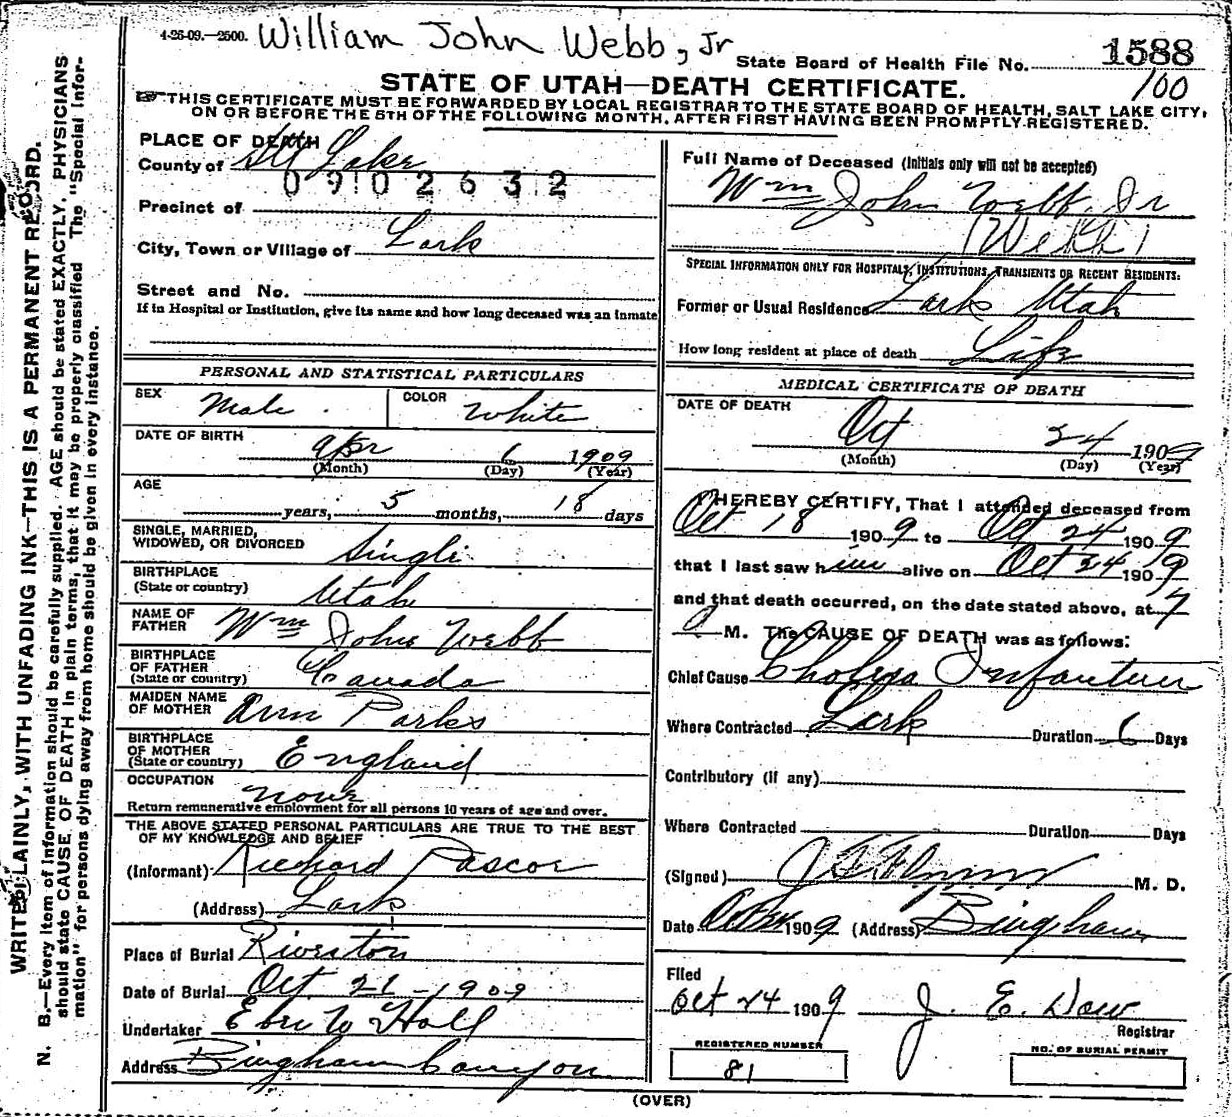 4-26-09.—2500. William John Webb, Jr
State Board of Health File No. 1588
100
STATE OF UTAH—DEATH CERTIFICATE.
THIS CERTIFICATE MUST BE FORWARDED BY LOCAL REGISTRAR TO THE STATE BOARD OF HEALTH, SALT LAKE CITY,
ON OR BEFORE THE 5TH OF THE FOLLOWING MONTH, AFTER FIRST HAVING BEEN PROMPTLY REGISTERED.
WRITE PLAINLY, WITH UNFADING INK—THIS IS A PERMANENT RECORD.
N. B.—Every item of information should be carefully supplied. AGE should be stated EXACTLY. PHYSICIANS
should state CAUSE OF DEATH in plain terms, that it may be properly classified. The "Special Infor-
mation" for persons dying away from home should be given in every instance.
PLACE OF DEATH
County of Slt Lake
0902632
Precinct of
City, Town or Village of Lark
Street and No.
If in Hospital or Institution, give its name and how long deceased was an inmate
PERSONAL AND STATISTICAL PARTICULARS
SEX Male COLOR White
DATE OF BIRTH
Apr 6 1909
(Month) (Day) (Year)
AGE
years, 5 months, 18 days
SINGLE, MARRIED,
WIDOWED, OR DIVORCED Single
BIRTHPLACE
(State or country) Utah
NAME OF
FATHER Wm John Webb
BIRTHPLACE
OF FATHER
(State or country) Canada
MAIDEN NAME
OF MOTHER Ann Parks
BIRTHPLACE
OF MOTHER
(State or country) England
OCCUPATION
none
Return remunerative employment for all persons 10 years of age and over.
THE ABOVE STATED PERSONAL PARTICULARS ARE TRUE TO THE BEST
OF MY KNOWLEDGE AND BELIEF
(Informant) Richard Pascoe
(Address) Lark
Place of Burial Riverton
Date of Burial Oct. 21-1909
Undertaker Hall
Address Bingham Canyon
Full Name of Deceased (Initials only will not be accepted)
Wm John Webb Jr
(Webb)
SPECIAL INFORMATION ONLY FOR HOSPITALS, INSTITUTIONS, TRANSIENTS OR RECENT RESIDENTS:
Former or Usual Residence Lark Utah
How long resident at place of death Life
MEDICAL CERTIFICATE OF DEATH
DATE OF DEATH
Oct 24 1909
(Month) (Day) (Year)
I HEREBY CERTIFY, That I attended deceased from
Oct 18 1909 to Oct 24 1909
that I last saw him alive on Oct 24 1909
and that death occurred, on the date stated above, at 7
a M. The CAUSE OF DEATH was as follows:
Chief Cause Cholera Infantum
Where Contracted Lark Duration 6 Days
Contributory (if any)
Where Contracted Duration Days
(Signed) M. D.
Date 1909 (Address) Bingham
Filed
Oct 24 1909 J. E. Dow
Registrar
REGISTERED NUMBER
81
NO. OF BURIAL PERMIT
(OVER)